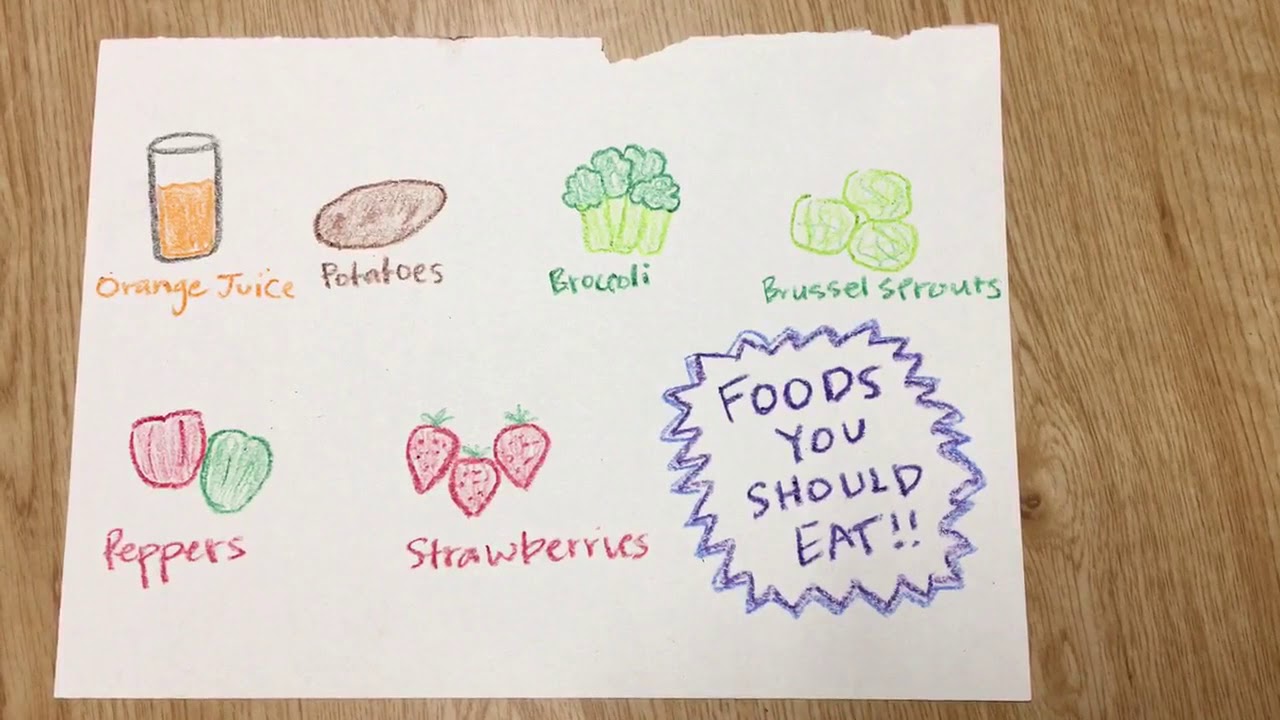 Orange Juice
Potatoes
Broccoli
Brussel sprouts
Peppers
Strawberries
FOODS
YOU
SHOULD
EAT!!